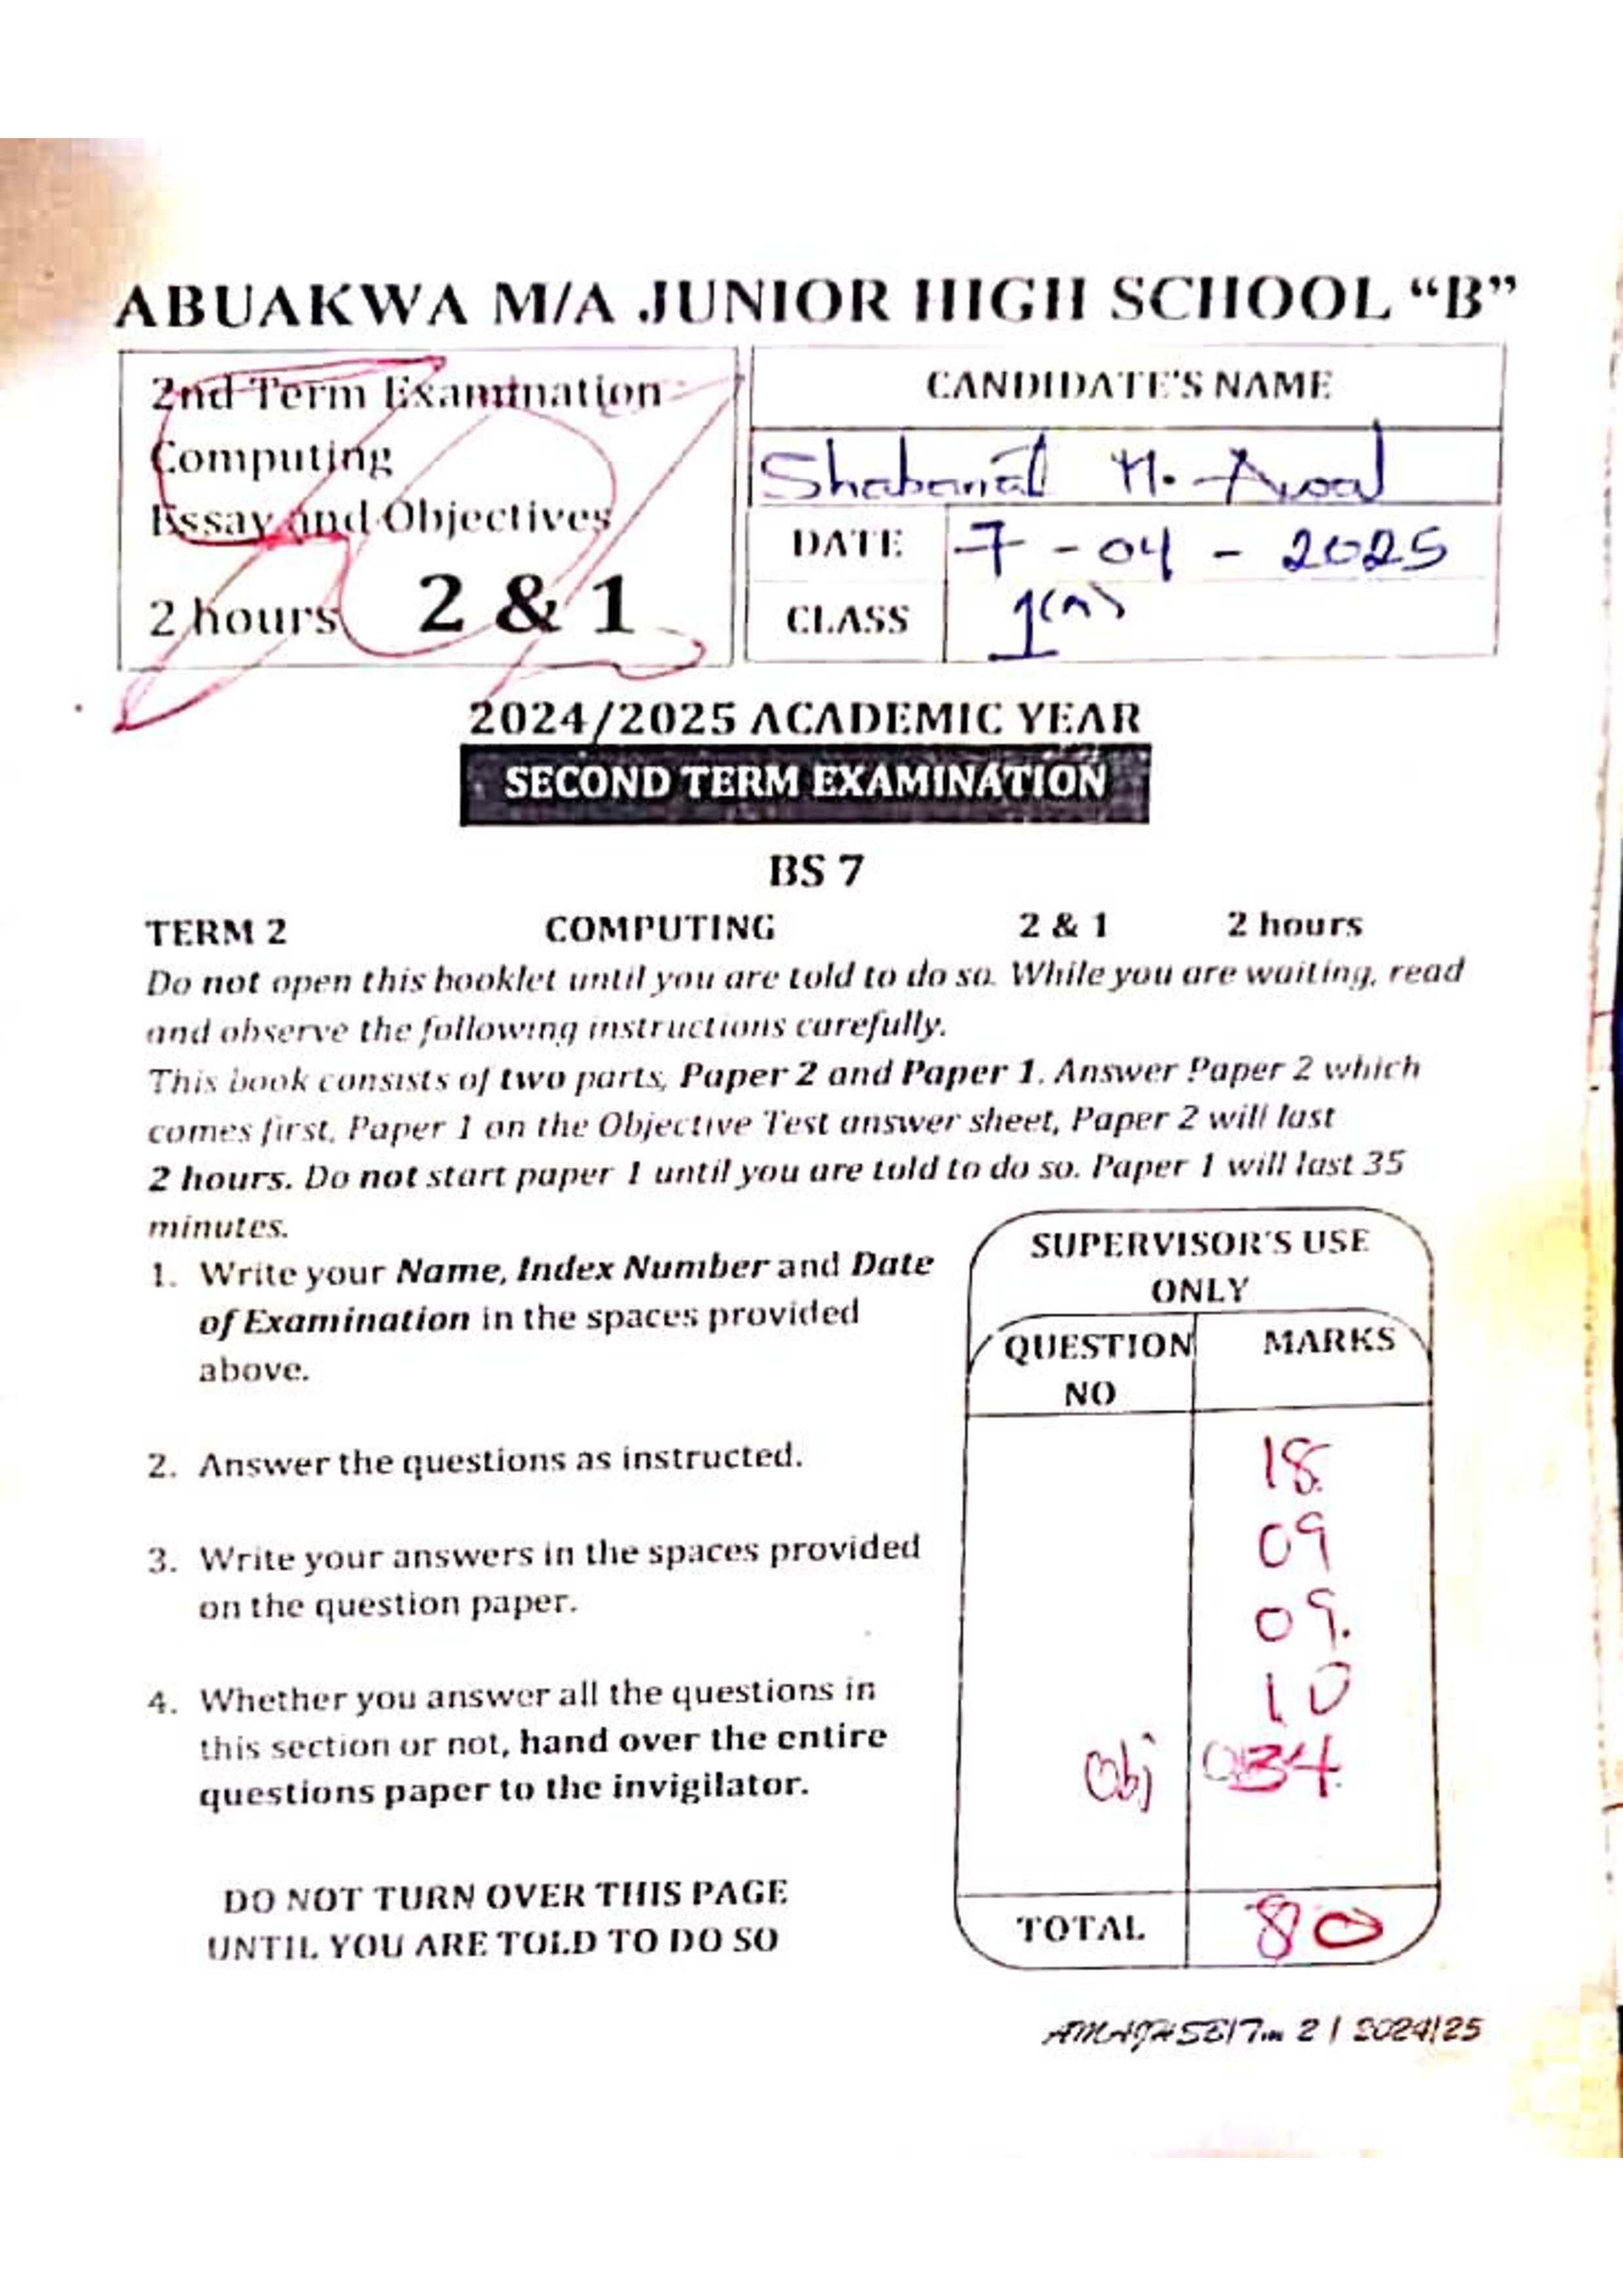 ABUAKWA M/A JUNIOR HIGH SCHOOL “B”
2nd Term Examination
Computing
Essay and Objectives
2 hours 2 & 1
CANDIDATE'S NAME
M. Awal
DATE 7 - 04 - 2025
CLASS
2024/2025 ACADEMIC YEAR
SECOND TERM EXAMINATION
BS 7
TERM 2 COMPUTING 2 & 1 2 hours
Do not open this booklet until you are told to do so. While you are waiting, read
and observe the following instructions carefully.
This book consists of two parts, Paper 2 and Paper 1. Answer Paper 2 which
comes first, Paper 1 on the Objective Test answer sheet, Paper 2 will last
2 hours. Do not start paper 1 until you are told to do so. Paper 1 will last 35
minutes.
1. Write your Name, Index Number and Date
of Examination in the spaces provided
above.
2. Answer the questions as instructed.
3. Write your answers in the spaces provided
on the question paper.
4. Whether you answer all the questions in
this section or not, hand over the entire
questions paper to the invigilator.
DO NOT TURN OVER THIS PAGE
UNTIL YOU ARE TOLD TO DO SO
SUPERVISOR'S USE
ONLY
QUESTION MARKS
NO
18
09
09.
10
Obj 34
TOTAL 80
AMAJHSB/Tm 2 / 2024/25